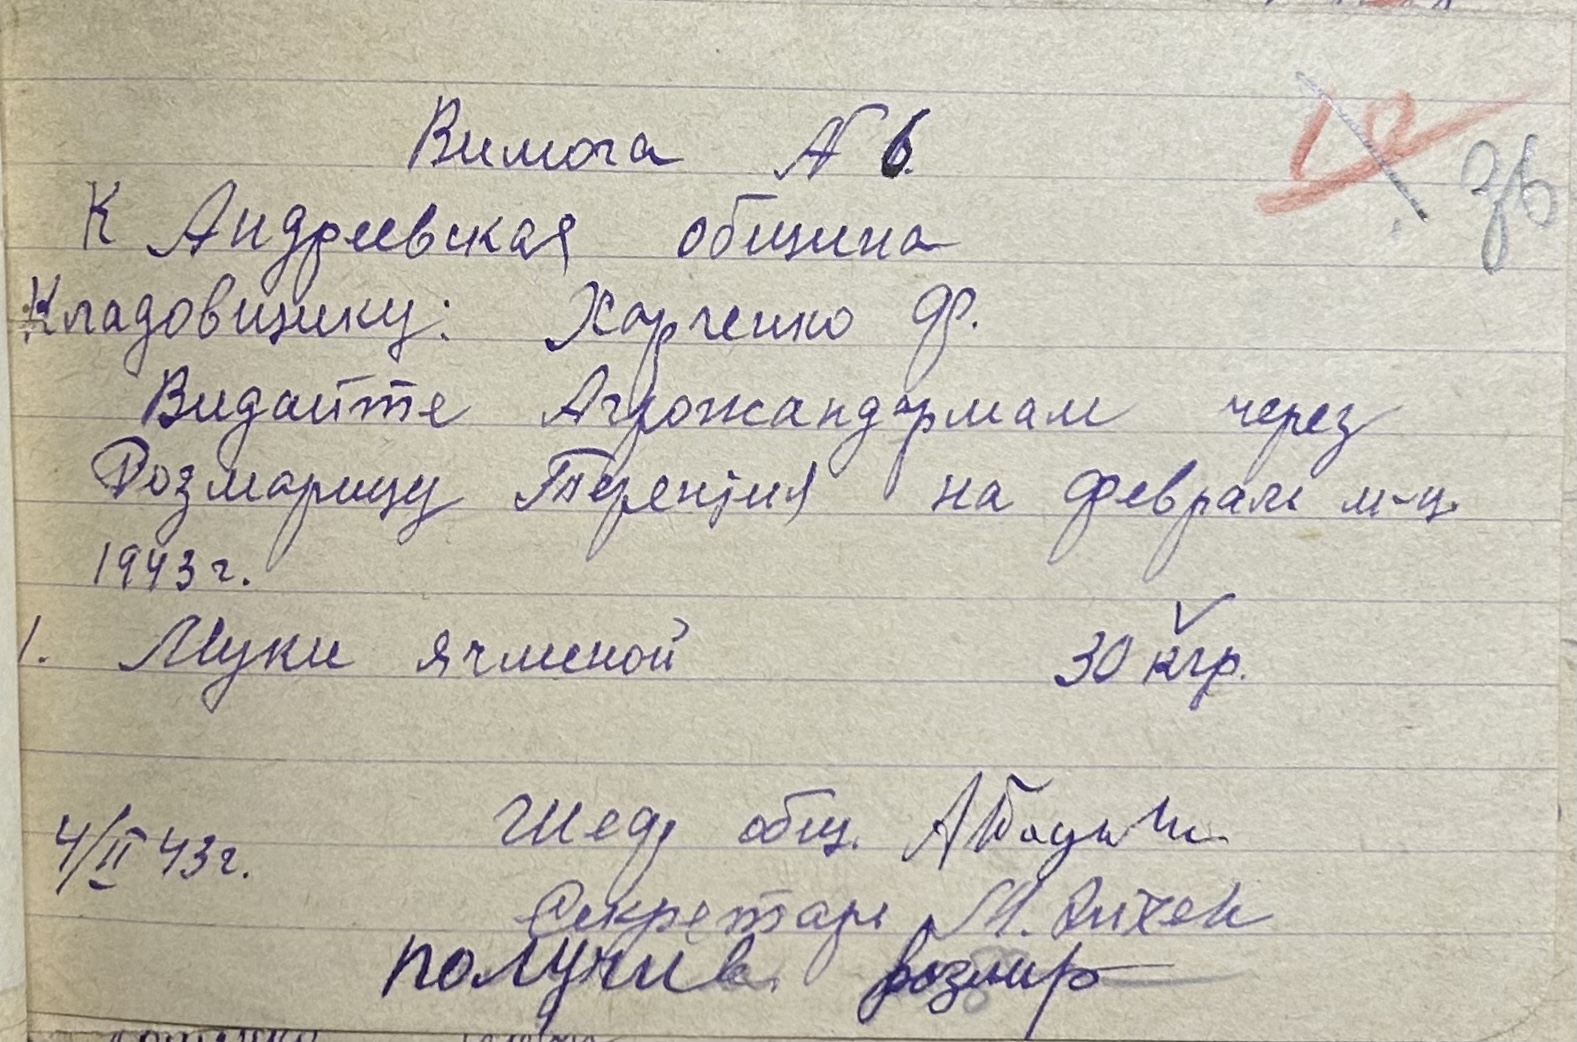 Вимога № 6.
К Андреевская община
Кладовщику: Харченко Ф.
Видайте Агрожандармам через
Розмарицу Терентия на февраль м-ц
1943 г.
1. Муки ячменой 30 кгр.
общ.
4/II 43 г.
Секретарь М.
получив розмир
36